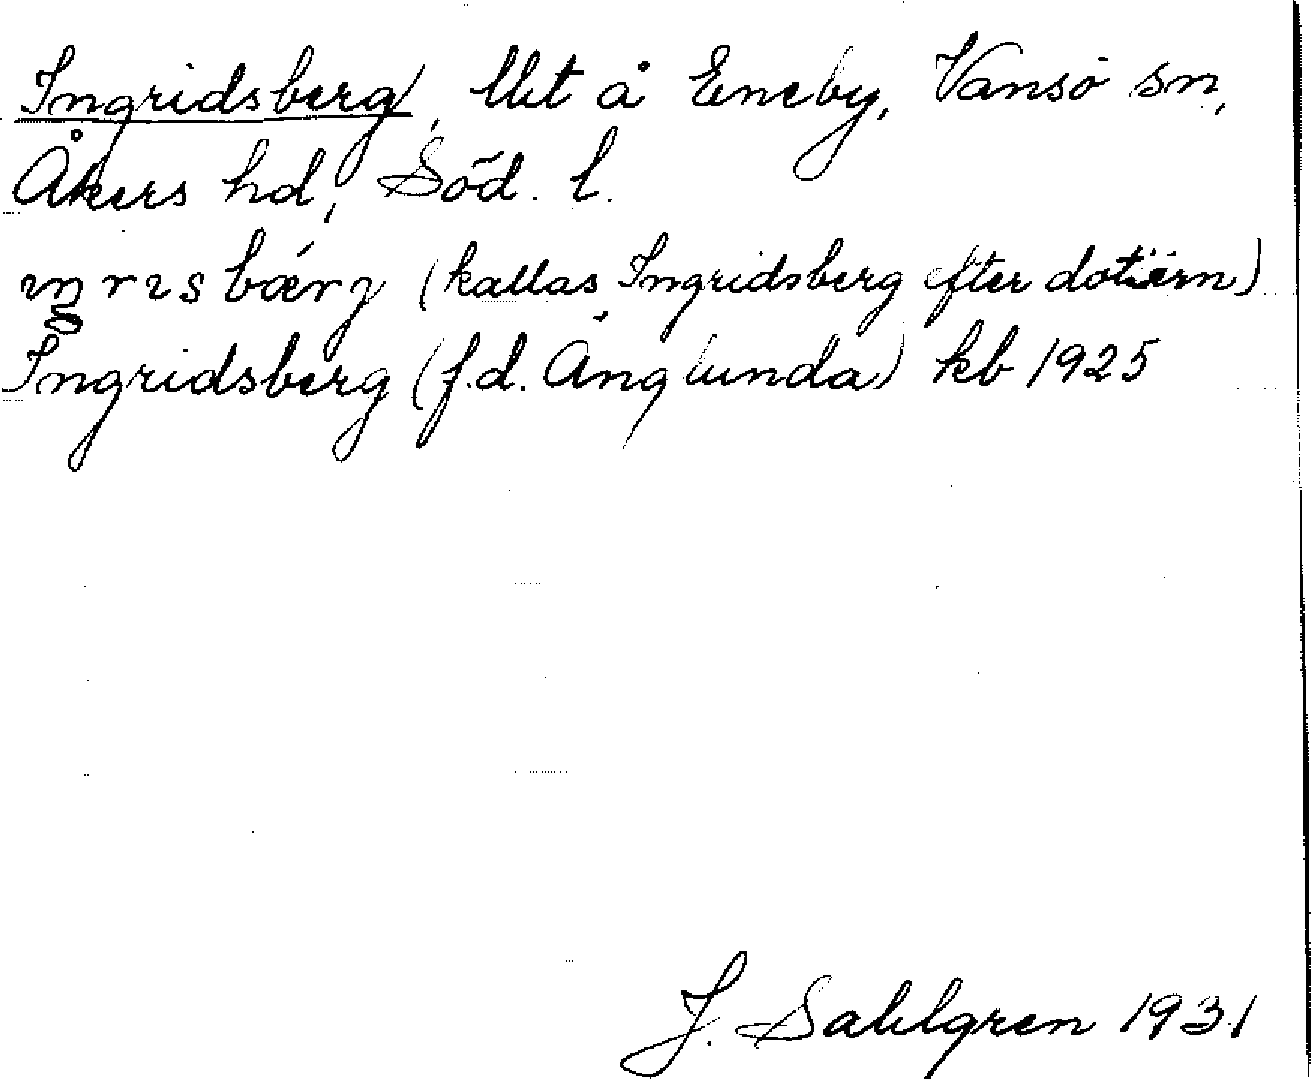 Ingridsberg, llht å Eneby, Vansö sn,
Åkers hd, Söd. l.
(kallas Ingridsberg efter dottern)
Ingridsberg (f.d. Änglunda) kb 1925
J. Sahlgren 1931